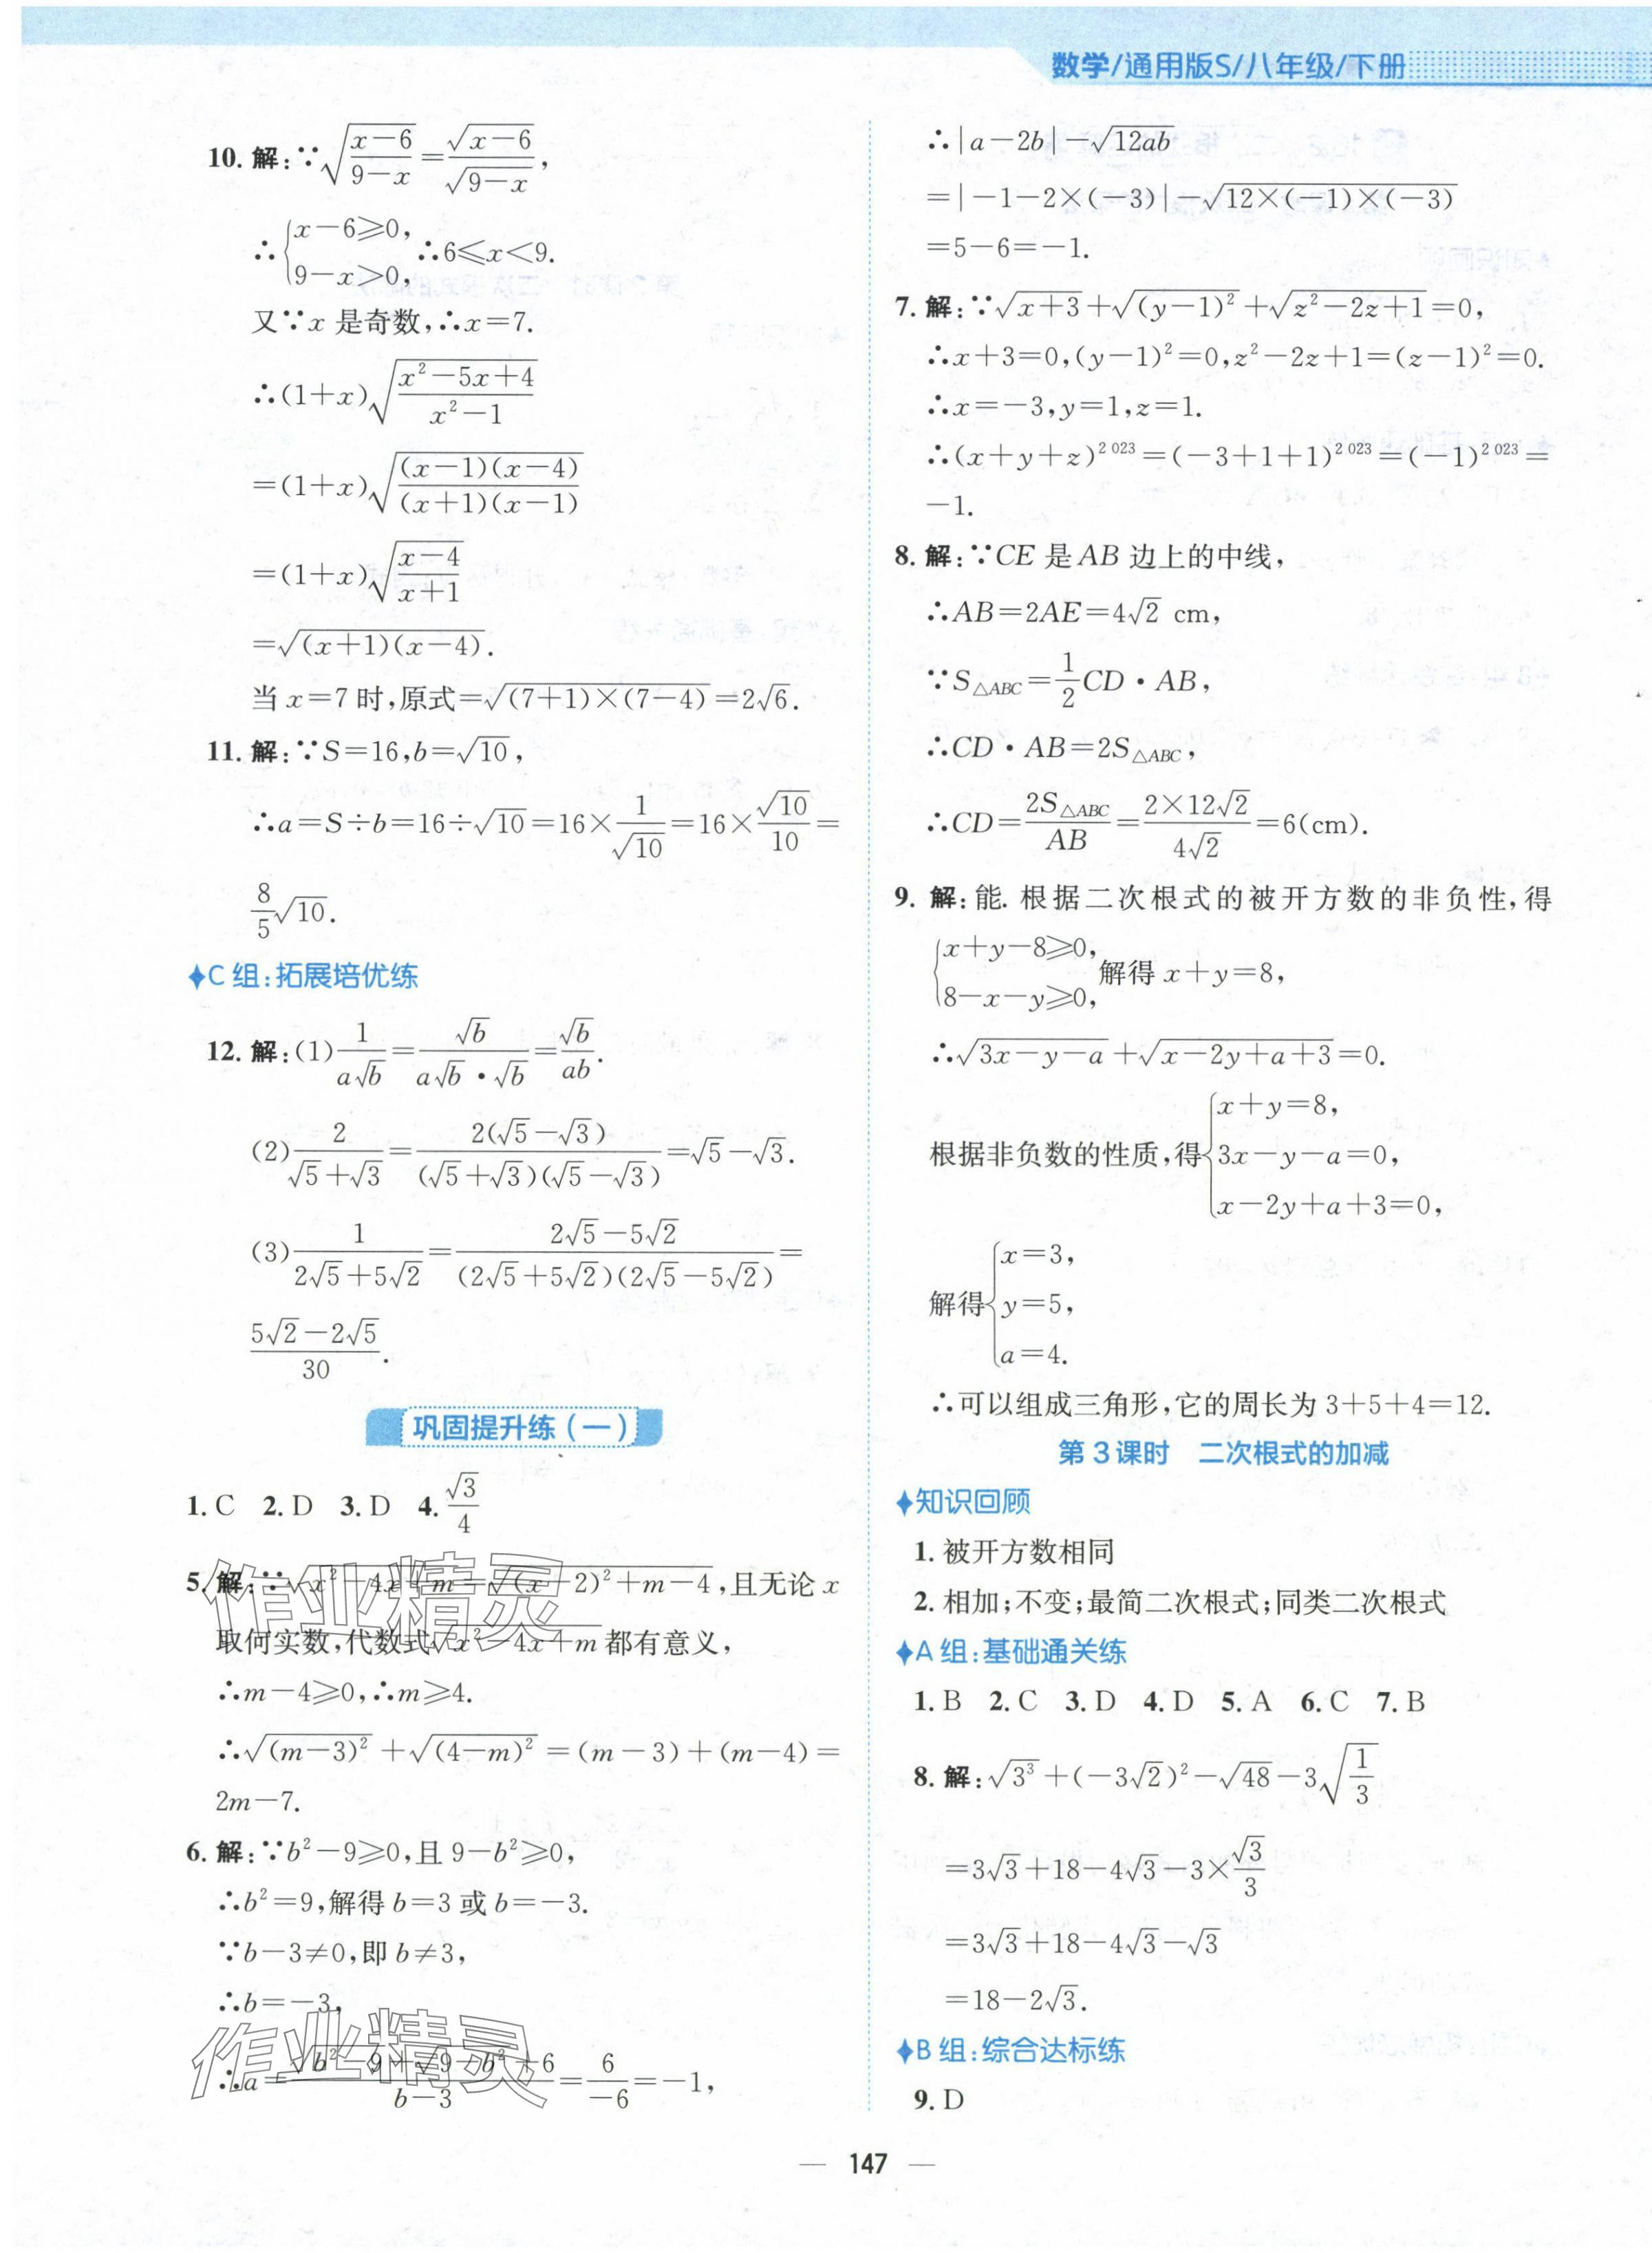 数学/通用版S/八年级/下册
10. 解:∵√((x-6)/(9-x))=√(x-6)/√(9-x),
∴{x-6≥0, 9-x>0, ∴6≤x<9.
又∵x 是奇数,∴x=7.
∴(1+x)√((x²-5x+4)/(x²-1))
=(1+x)√((x-1)(x-4)/((x+1)(x-1)))
=(1+x)√((x-4)/(x+1))
=√((x+1)(x-4)).
当 x=7 时,原式=√((7+1)×(7-4))=2√6.
11. 解:∵S=16,b=√10,
∴a=S÷b=16÷√10=16×1/√10=16×√10/10=
8/5√10.
C 组:拓展培优练
12. 解:(1)1/(a√b)=√b/(a√b·√b)=√b/(ab).
(2)2/(√5+√3)=2(√5-√3)/((√5+√3)(√5-√3))=√5-√3.
(3)1/(2√5+5√2)=(2√5-5√2)/((2√5+5√2)(2√5-5√2))=
(5√2-2√5)/30.
巩固提升练(一)
1. C 2. D 3. D 4. √3/4
5. 解:∵√(x²-4x+m)=√((x-2)²+m-4),且无论 x
取何实数,代数式√(x²-4x+m)都有意义,
∴m-4≥0,∴m≥4.
∴√((m-3)²)+√((4-m)²)=(m-3)+(m-4)=
2m-7.
6. 解:∵b²-9≥0,且 9-b²≥0,
∴b²=9,解得 b=3 或 b=-3.
∵b-3≠0,即 b≠3,
∴b=-3,
∴a=(√(b²-9)+√(9-b²)+6)/(b-3)=6/(-6)=-1,
作业精灵
作业精灵
∴|a-2b|-√(12ab)
=|-1-2×(-3)|-√(12×(-1)×(-3))
=5-6=-1.
7. 解:∵√(x+3)+√((y-1)²)+√(z²-2z+1)=0,
∴x+3=0,(y-1)²=0,z²-2z+1=(z-1)²=0.
∴x=-3,y=1,z=1.
∴(x+y+z)^2 023=(-3+1+1)^2 023=(-1)^2 023=
-1.
8. 解:∵CE 是 AB 边上的中线,
∴AB=2AE=4√2 cm,
∵S△ABC=1/2CD·AB,
∴CD·AB=2S△ABC,
∴CD=2S△ABC/AB=(2×12√2)/(4√2)=6(cm).
9. 解:能. 根据二次根式的被开方数的非负性,得
{x+y-8≥0, 8-x-y≥0, 解得 x+y=8,
∴√(3x-y-a)+√(x-2y+a+3)=0.
根据非负数的性质,得{x+y=8, 3x-y-a=0, x-2y+a+3=0,
解得{x=3, y=5, a=4.
∴可以组成三角形,它的周长为 3+5+4=12.
第 3 课时 二次根式的加减
知识回顾
1. 被开方数相同
2. 相加;不变;最简二次根式;同类二次根式
A 组:基础通关练
1. B 2. C 3. D 4. D 5. A 6. C 7. B
8. 解:√(3³)+(-3√2)²-√48-3√(1/3)
=3√3+18-4√3-3×√3/3
=3√3+18-4√3-√3
=18-2√3.
B 组:综合达标练
9. D
— 147 —